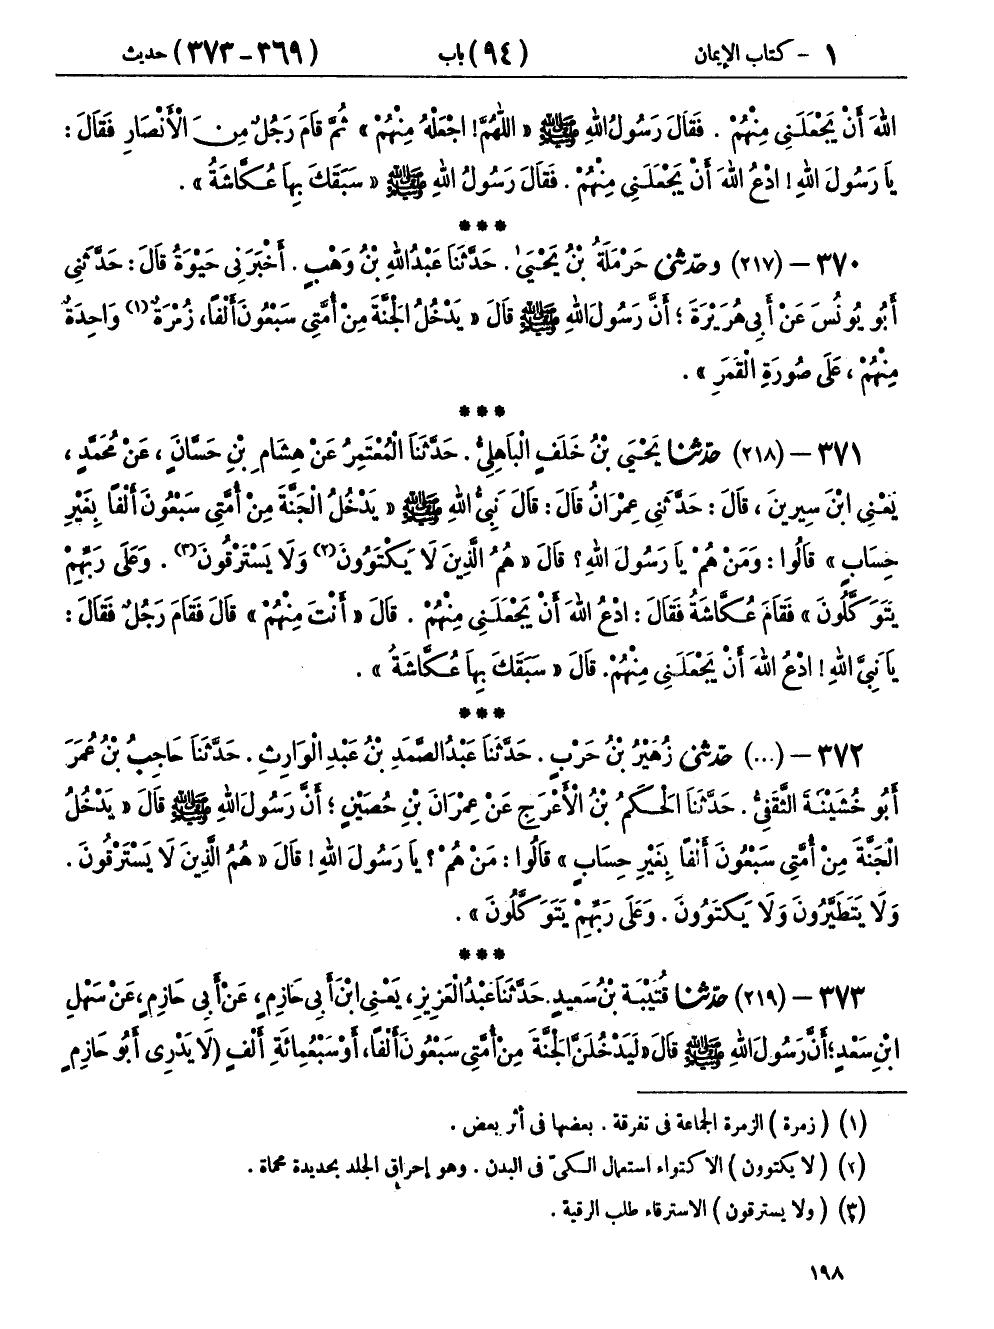 ١ - كتاب الإيمان (٩٤) باب (٣٦٩-٣٧٣) حديث
اللهَ أَنْ يَجْعَلَنِي مِنْهُمْ . فَقَالَ رَسُولُ اللهِ ﷺ « اللّٰهُمَّ! اجْعَلْهُ مِنْهُمْ » ثُمَّ قَامَ رَجُلٌ مِنَ الْأَنْصَارِ فَقَالَ :
يَا رَسُولَ اللهِ! ادْعُ اللهَ أَنْ يَجْعَلَنِي مِنْهُمْ . فَقَالَ رَسُولُ اللهِ ﷺ « سَبَقَكَ بِهَا عُكَّاشَةُ » .
***
٣٧٠ - (٢١٧) وحَدّثنى حَرْمَلَةُ بْنُ يَحْيَىٰ . حَدَّثَنَا عَبْدُ اللهِ بْنُ وَهْبٍ . أَخْبَرَنِي حَيْوَةُ قَالَ : حَدَّثَنِي
أَبُو يُونُسَ عَنْ أَبِي هُرَيْرَةَ ؛ أَنَّ رَسُولَ اللهِ ﷺ قَالَ « يَدْخُلُ الْجَنَّةَ مِنْ أُمَّتِي سَبْعُونَ أَلْفًا، زُمْرَةٌ (١) وَاحِدَةٌ
مِنْهُمْ ، عَلَى صُورَةِ الْقَمَرِ » .
***
٣٧١ - (٢١٨) حَدّثنا يَحْيَى بْنُ خَلَفٍ الْبَاهِلِيُّ . حَدَّثَنَا الْمُعْتَمِرُ عَنْ هِشَامِ بْنِ حَسَّانَ ، عَنْ مُحَمَّدٍ ،
يَعْنِي ابْنَ سِيرِينَ ، قَالَ : حَدَّثَنِي عِمْرَانُ قَالَ : قَالَ نَبِيُّ اللهِ ﷺ « يَدْخُلُ الْجَنَّةَ مِنْ أُمَّتِي سَبْعُونَ أَلْفًا بِغَيْرِ
حِسَابٍ » قَالُوا : وَمَنْ هُمْ يَا رَسُولَ اللهِ ؟ قَالَ « هُمُ الَّذِينَ لَا يَكْتَوُونَ (٢) وَلَا يَسْتَرْقُونَ (٣) . وَعَلَى رَبِّهِمْ
يَتَوَكَّلُونَ » فَقَامَ عُكَّاشَةُ فَقَالَ : ادْعُ اللهَ أَنْ يَجْعَلَنِي مِنْهُمْ . قَالَ « أَنْتَ مِنْهُمْ » قَالَ فَقَامَ رَجُلٌ فَقَالَ :
يَا نَبِيَّ اللهِ ! ادْعُ اللهَ أَنْ يَجْعَلَنِي مِنْهُمْ. قَالَ « سَبَقَكَ بِهَا عُكَّاشَةُ » .
***
٣٧٢ - (...) حَدّثنى زُهَيْرُ بْنُ حَرْبٍ . حَدَّثَنَا عَبْدُ الصَّمَدِ بْنُ عَبْدِ الْوَارِثِ . حَدَّثَنَا حَاجِبُ بْنُ عُمَرَ
أَبُو خُشَيْنَةَ الثَّقَفِيُّ . حَدَّثَنَا الْحَكَمُ بْنُ الْأَعْرَجِ عَنْ عِمْرَانَ بْنِ حُصَيْنٍ ؛ أَنَّ رَسُولَ اللهِ ﷺ قَالَ « يَدْخُلُ
الْجَنَّةَ مِنْ أُمَّتِي سَبْعُونَ أَلْفًا بِغَيْرِ حِسَابٍ » قَالُوا : مَنْ هُمْ ؟ يَا رَسُولَ اللهِ ! قَالَ « هُمُ الَّذِينَ لَا يَسْتَرْقُونَ .
وَلَا يَتَطَيَّرُونَ وَلَا يَكْتَوُونَ . وَعَلَى رَبِّهِمْ يَتَوَكَّلُونَ » .
***
٣٧٣ - (٢١٩) حَدّثنا قُتَيْبَةُ بْنُ سَعِيدٍ. حَدَّثَنَا عَبْدُ الْعَزِيزِ، يَعْنِي ابْنَ أَبِي حَازِمٍ، عَنْ أَبِي حَازِمٍ، عَنْ سَهْلِ
ابْنِ سَعْدٍ؛ أَنَّ رَسُولَ اللهِ ﷺ قَالَ « لَيَدْخُلَنَّ الْجَنَّةَ مِنْ أُمَّتِي سَبْعُونَ أَلْفًا، أَوْ سَبْعُمِائَةِ أَلْفٍ (لَا يَدْرِى أَبُو حَازِمٍ
(١) ( زمرة ) الزمرة الجماعة فى تفرقة . بعضها فى أثر بعض .
(٢) ( لا يكتوون ) الاكتواء استعمال الكىّ فى البدن . وهو إحراق الجلد بحديدة محماة .
(٣) ( ولا يسترقون ) الاسترقاء طلب الرقية .
١٩٨